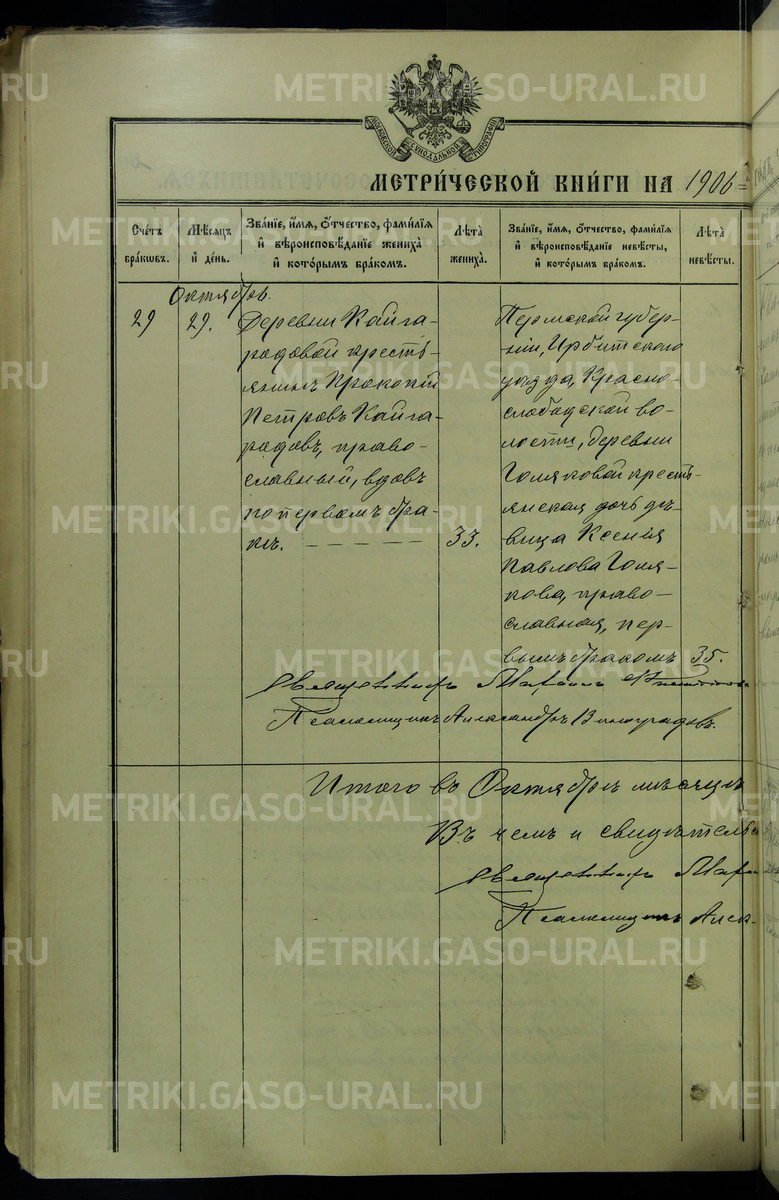 МОСКОВСКОЙ СУНОДАЛЬНОЙ ТИПОГРАФІИ
МЕТРИ́ЧЕСКОЙ КНИ́ГИ НА 1906
Сче́тъ бра́кωвъ.
Мѣ́сѧцъ и҆ де́нь.
Зва́нїе, и҆́мѧ, ѻ҆́тчество, фами́лїѧ и҆ вѣроисповѣ́данїе жениха̀ и҆ кото́рымъ бра́комъ.
Лѣ́та жениха̀.
Зва́нїе, и҆́мѧ, ѻ҆́тчество, фами́лїѧ и҆ вѣроисповѣ́данїе невѣ́сты, и҆ кото́рымъ бра́комъ.
Лѣ́та невѣ́сты.
Октябрь.
29
29.
Деревни Кайга-
родовой кресть-
янинъ Прокопій
Петровъ Кайга-
родовъ, право-
славный, вдовъ
по первомъ бра-
кѣ.
33.
Пермской губер-
ніи, Ирбитскаго
уѣзда, Красно-
слободской во-
лости, деревни
Голяковой кресть-
янская дочь дѣ-
вица Ксенія
Павлова Голя-
кова, право-
славная, пер-
вымъ бракомъ
35.
Священникъ
Псаломщикъ Александръ Виноградовъ.
Итого въ Октябрѣ мѣсяцѣ
Въ чемъ и свидѣтельс
Священникъ
Псаломщикъ Алек-
METRIKI.GASO-URAL.RU